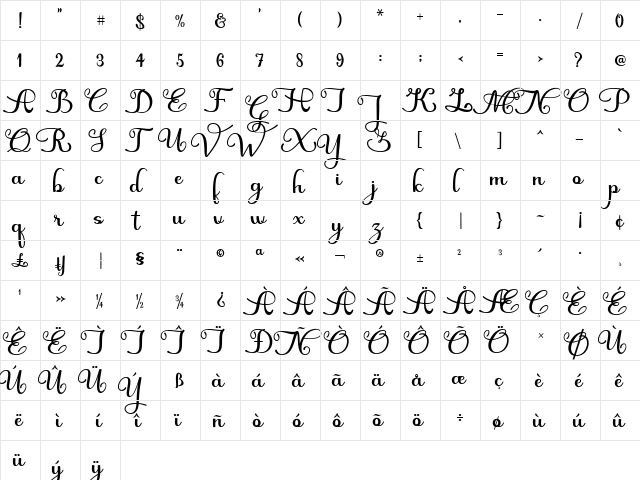 ! " # $ % & ' ( ) * + , - . / 0
1 2 3 4 5 6 7 8 9 : ; < = > ? @
A B C D E F G H I J K L M N O P
Q R S T U V W X Y Z [ \ ] ^ _ `
a b c d e f g h i j k l m n o p
q r s t u v w x y z { | } ~ ¡ ¢
£ ¥ ¦ § ¨ © ª « ¬ ® ± ² ³ ´ · ¸
¹ » ¼ ½ ¾ ¿ À Á Â Ã Ä Å Æ Ç È É
Ê Ë Ì Í Î Ï Ð Ñ Ò Ó Ô Õ Ö × Ø Ù
Ú Û Ü Ý ß à á â ã ä å æ ç è é ê
ë ì í î ï ñ ò ó ô õ ö ÷ ø ù ú û
ü ý ÿ